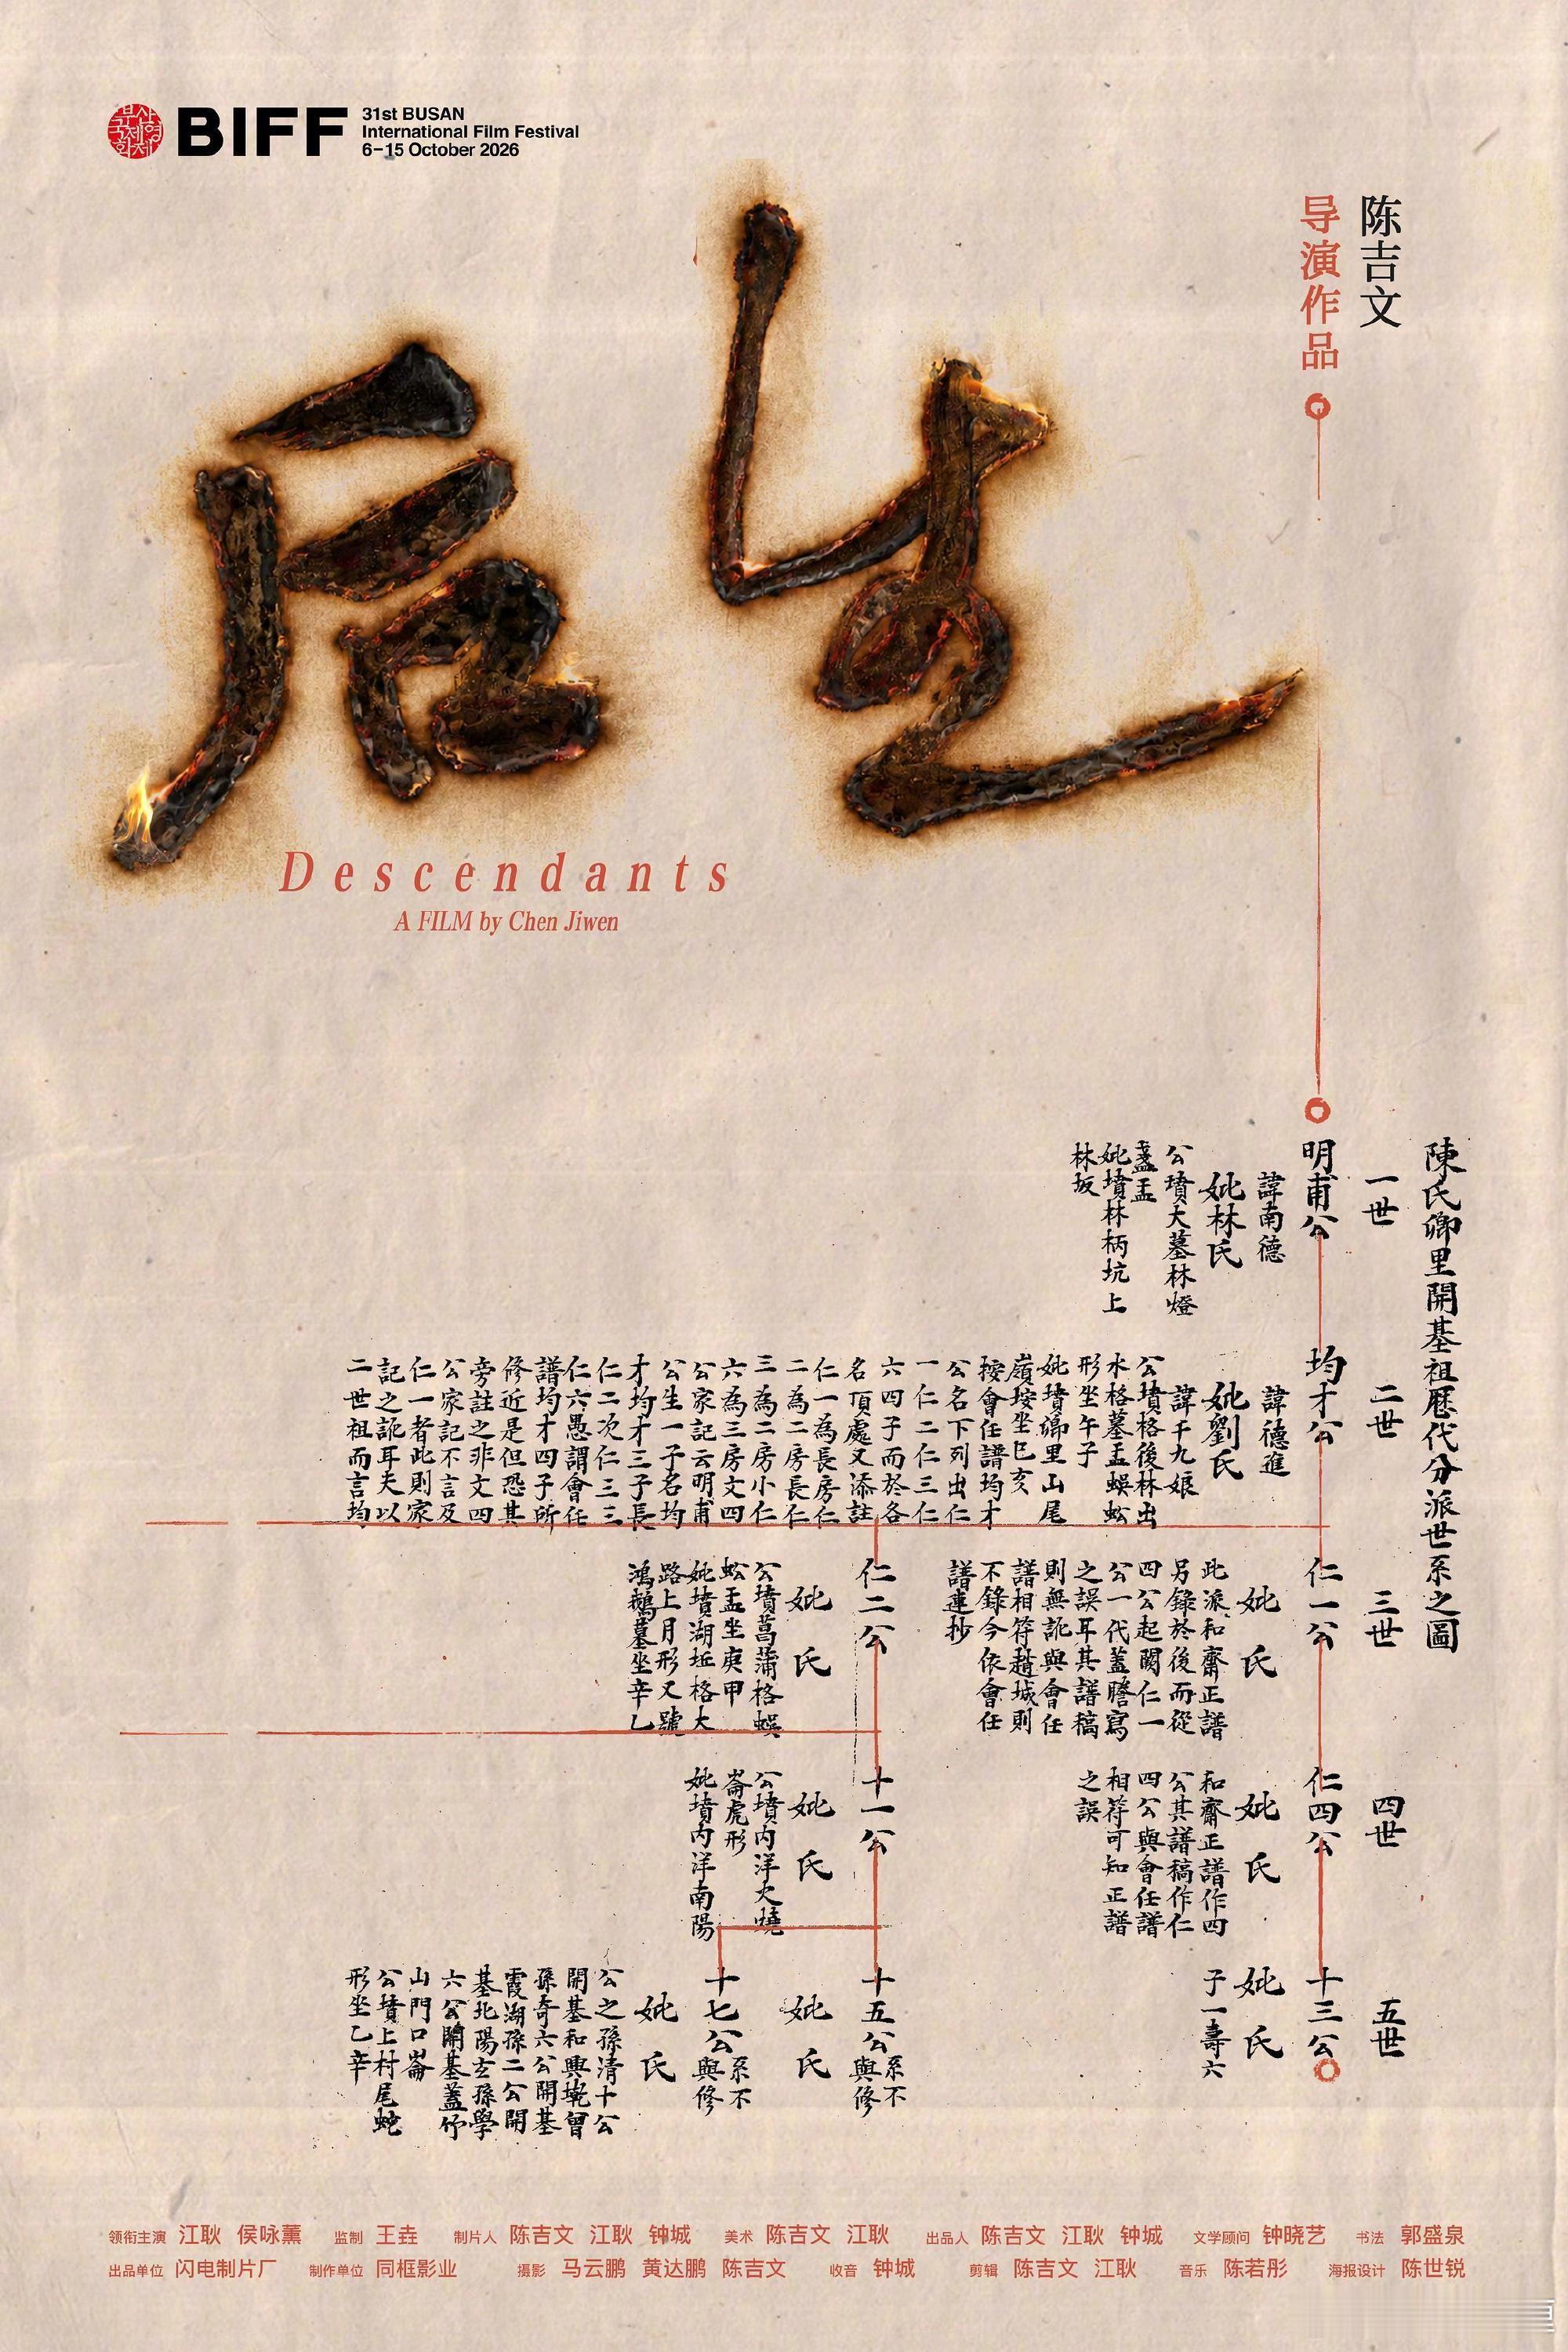 부산
국제영
화제
BIFF
31st BUSAN
International Film Festival
6–15 October 2026
陈吉文
导演作品
后生
Descendants
A FILM by Chen Jiwen
陳氏卿里開基祖歷代分派世系之圖
一世
明甫公
諱南德
妣林氏
公墳大墓林燈
盞盂
妣墳林柄坑上
林坂
二世
均才公
諱德進
妣劉氏
諱千九娘
公墳格後林出
水格墓盂蜈蚣
形坐午子
妣墳卿里山尾
嶺垵坐巳亥
按會任譜均才
公名下列出仁
一仁二仁三仁
六四子而於各
名頂處又添註
仁一為長房仁
二為二房長仁
三為二房小仁
六為三房文四
公家記云明甫
公生一子名均
才均才三子長
仁二次仁三三
仁六愚謂會任
譜均才四子所
修近是但恐其
旁註之非文四
公家記不言及
仁一者此則家
記之訛耳夫以
二世祖而言均
三世
仁一公
妣 氏
此派和齋正譜
另錄於後而從
四公起闕仁一
公一代蓋謄寫
之誤耳其譜稿
則無訛與會任
譜相符趙城則
不錄今依會任
譜連抄
仁二公
妣 氏
公墳菖蒲格蜈
蚣盂坐庚甲
妣墳湖坵格大
路上月形又號
鴻鵝墓坐辛乙
四世
仁四公
妣 氏
和齋正譜作四
公其譜稿作仁
四公與會任譜
相符可知正譜
之誤
十一公
妣 氏
公墳內洋火燒
崙虎形
妣墳內洋南陽
五世
十三公
妣 氏
子一壽六
十五公系不與修
妣 氏
十七公系不與修
妣 氏
公之孫清十公
開基和興墘曾
孫奇六公開基
霞湖孫二公開
基北陽玄孫學
六公開基蓋仔
山門口崙
公墳上村尾蛇
形坐乙辛
领衔主演 江耿 侯咏薰 监制 王垚 制片人 陈吉文 江耿 钟城 美术 陈吉文 江耿 出品人 陈吉文 江耿 钟城 文学顾问 钟晓艺 书法 郭盛泉
出品单位 闪电制片厂 制作单位 同框影业 摄影 马云鹏 黄达鹏 陈吉文 收音 钟城 剪辑 陈吉文 江耿 音乐 陈若彤 海报设计 陈世锐